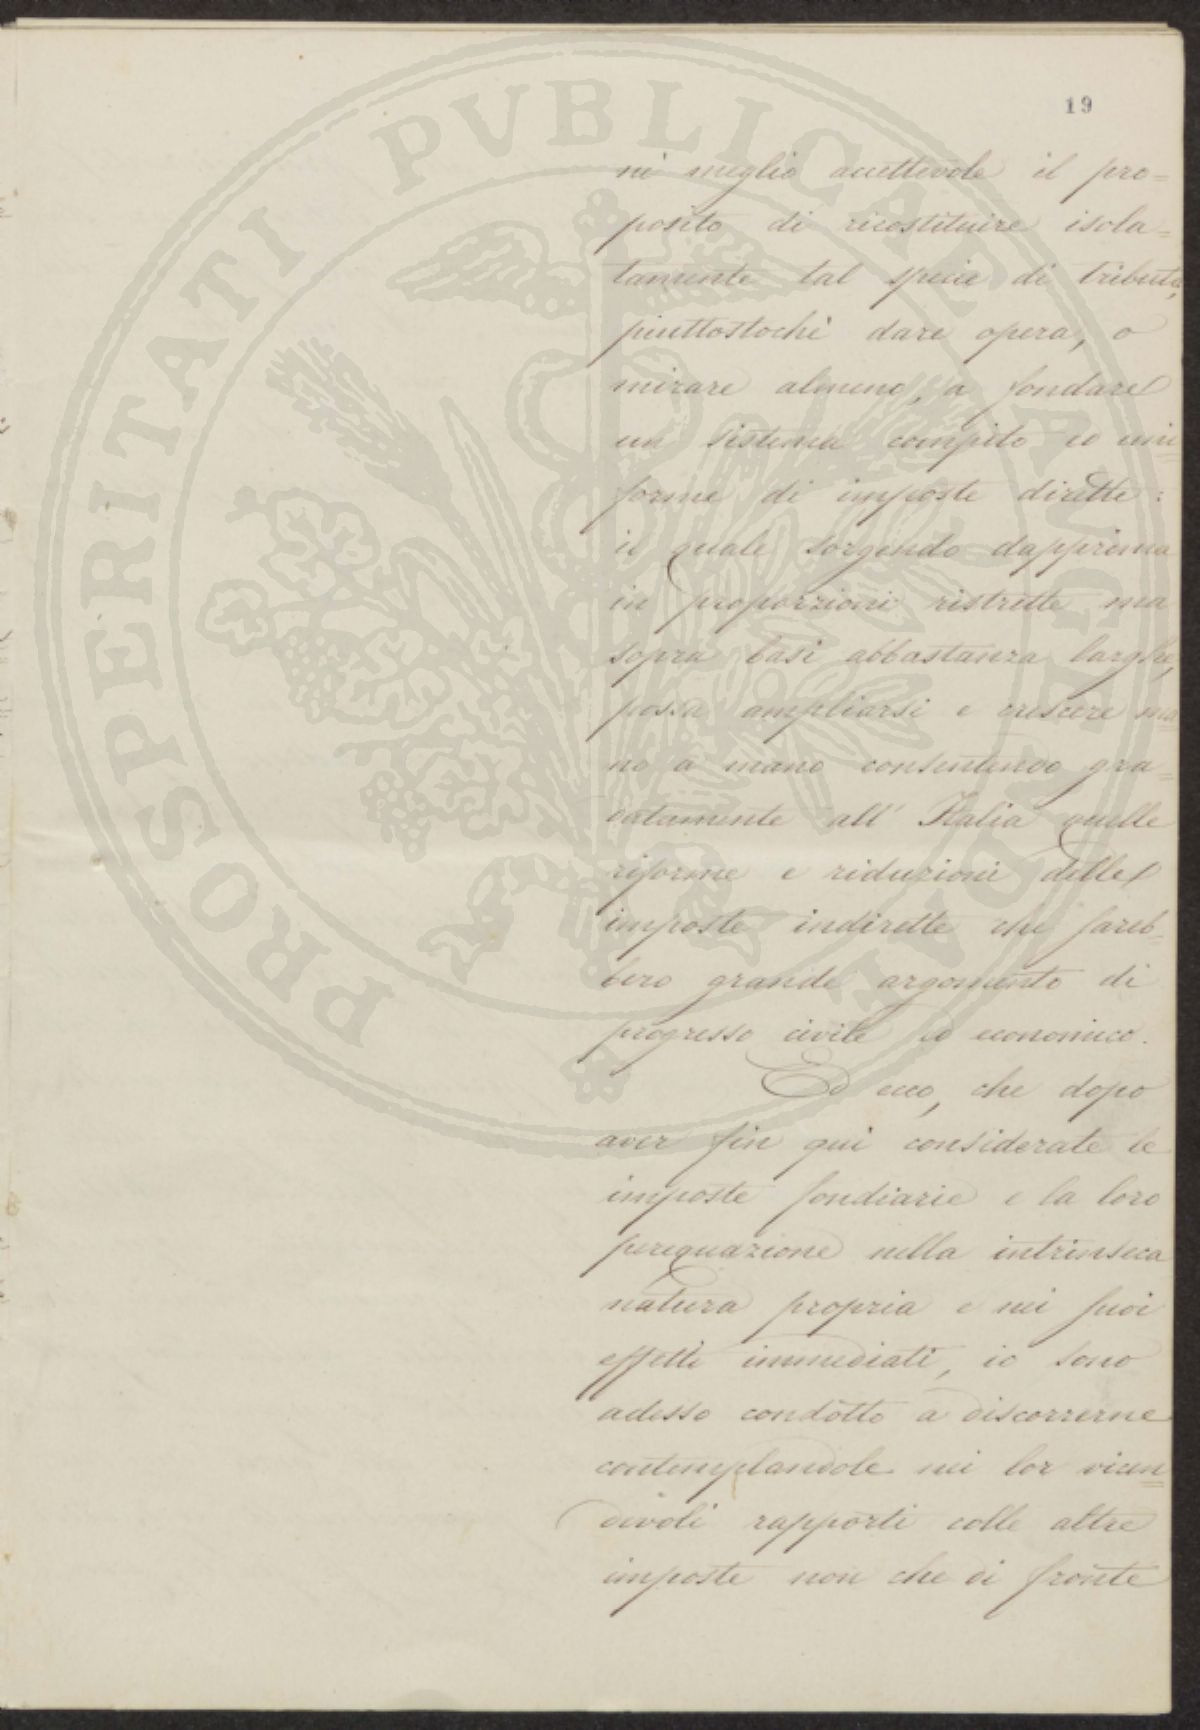 19
ni meglio accettevole il pro=
posito di ricostituire isola=
tamente tal specie di tributo,
piuttostochè dare opera, o
mirare almeno, a fondare
un sistema compito ed uni=
forme di imposte dirette:
il quale sorgendo dapprima
in proporzioni ristrette ma
sopra basi abbastanza larghe,
possa ampliarsi e crescere ma=
no a mano consentendo gra=
datamente all' Italia quelle
riforme e riduzioni delle
imposte indirette che fareb=
bero grande argomento di
progresso civile ed economico.
Ed ecco, che dopo
aver fin qui considerate le
imposte fondiarie e la loro
perequazione nella intrinseca
natura propria e nei suoi
effetti immediati, io sono
adesso condotto a discorrerne
contemplandole nei lor vicen=
devoli rapporti colle altre
imposte non che di fronte
PROSPERITATI PVBLICAE AVGENDAE